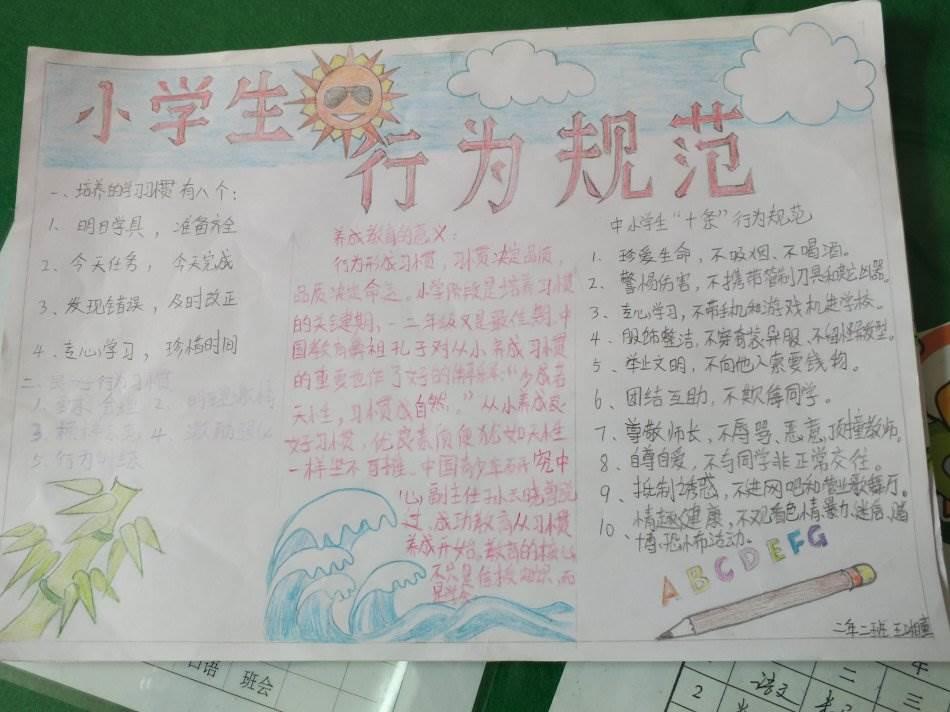 小学生
行为规范
一、培养的学习习惯有八个：
1. 明日学具，准备齐全
2、今天任务，今天完成
3、发现错误，及时改正
4、专心学习，珍惜时间
二、
行为习惯
1、
2、
3、
4、激励强化
5、行为训练
养成教育的意义：
行为形成习惯，习惯决定品质，
品质决定命运。小学阶段是培养习惯
的关键期，一二年级又是最佳期。中
国教育鼻祖孔子对从小养成习惯
的重要也作了好的
：“少成若
天性，习惯成自然。”从小养成良
好习惯，优良素质便犹如天性
一样坚不可摧。中国青少年研究中
心副主任孙云晓曾说
过，成功教育从习惯
养成开始。教育的核心
不只是传授知识，而
是学会
中小学生“十条”行为规范
1、珍爱生命，不吸烟、不喝酒。
2、警惕伤害，不携带管制刀具和
凶器。
3、专心学习，不带手机和游戏机进学校。
4、服饰整洁，不穿奇装异服、不留怪异发型。
5、举止文明，不向他人索要钱物。
6、团结互助，不欺侮同学。
7、尊敬师长，不辱骂、恶意顶撞教师。
8、自尊自爱，不与同学非正常交往。
9、抵制诱惑，不进网吧和营业歌舞厅。
10、情趣健康，不观看色情、暴力、迷信、赌
博、恐怖活动。
ABCDEFG
二年二班 王
口语
班会
2
语文
二
三
四
三